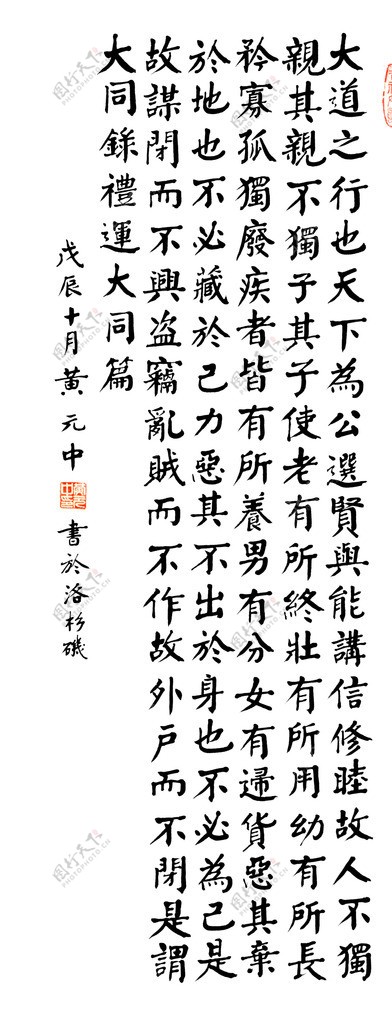 大道之行也天下為公選賢與能講信修睦故人不獨
親其親不獨子其子使老有所終壯有所用幼有所長
矜寡孤獨廢疾者皆有所養男有分女有歸貨惡其棄
於地也不必藏於己力惡其不出於身也不必為己是
故謀閉而不興盜竊亂賊而不作故外戶而不閉是謂
大同錄禮運大同篇
戊辰十月黃元中書於洛杉磯
图行天下
PHOTOPHOTO.CN